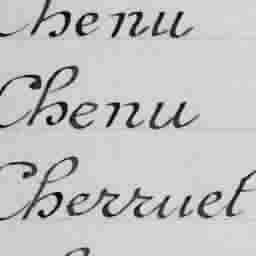 Chenu
Chenu
Cherruel